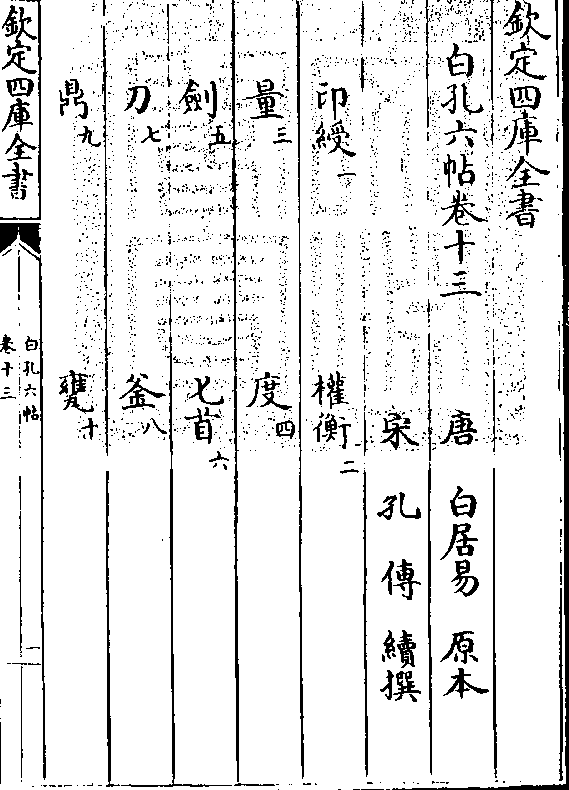 欽定四庫全書
白孔六帖卷十三
唐 白居易 原本
宋 孔傳 續撰
印綬一 權衡二
量三 度四
劍五 匕首六
刀七 釜八
鼎九 甕十
欽定四庫全書
白孔六帖
卷十三
一